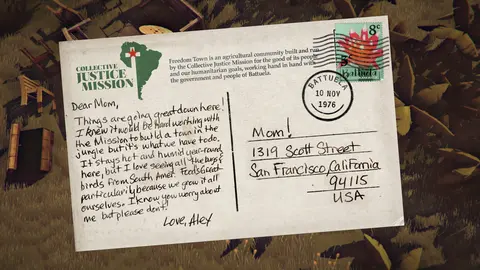 COLLECTIVE
JUSTICE
MISSION
Freedom Town is an agricultural community built and run
by the Collective Justice Mission for the good of its people
and our humanitarian goals, working hand in hand with
the government and people of Battuela.
Dear Mom,
Things are going great down here!
I knew it would be hard working with
the Mission to build a town in the
jungle but it's what we have to do.
It stays hot and humid year-round
here, but I love seeing all the bugs &
birds from South Amer. Feeds Great
particularly because we grow it all
ourselves. I know you worry about
me but please don't!
Love, Alex
8¢
Battuela
BATTUELA
10 NOV
1976
Mom!
1319 Scott Street
San Francisco, California
94115
USA